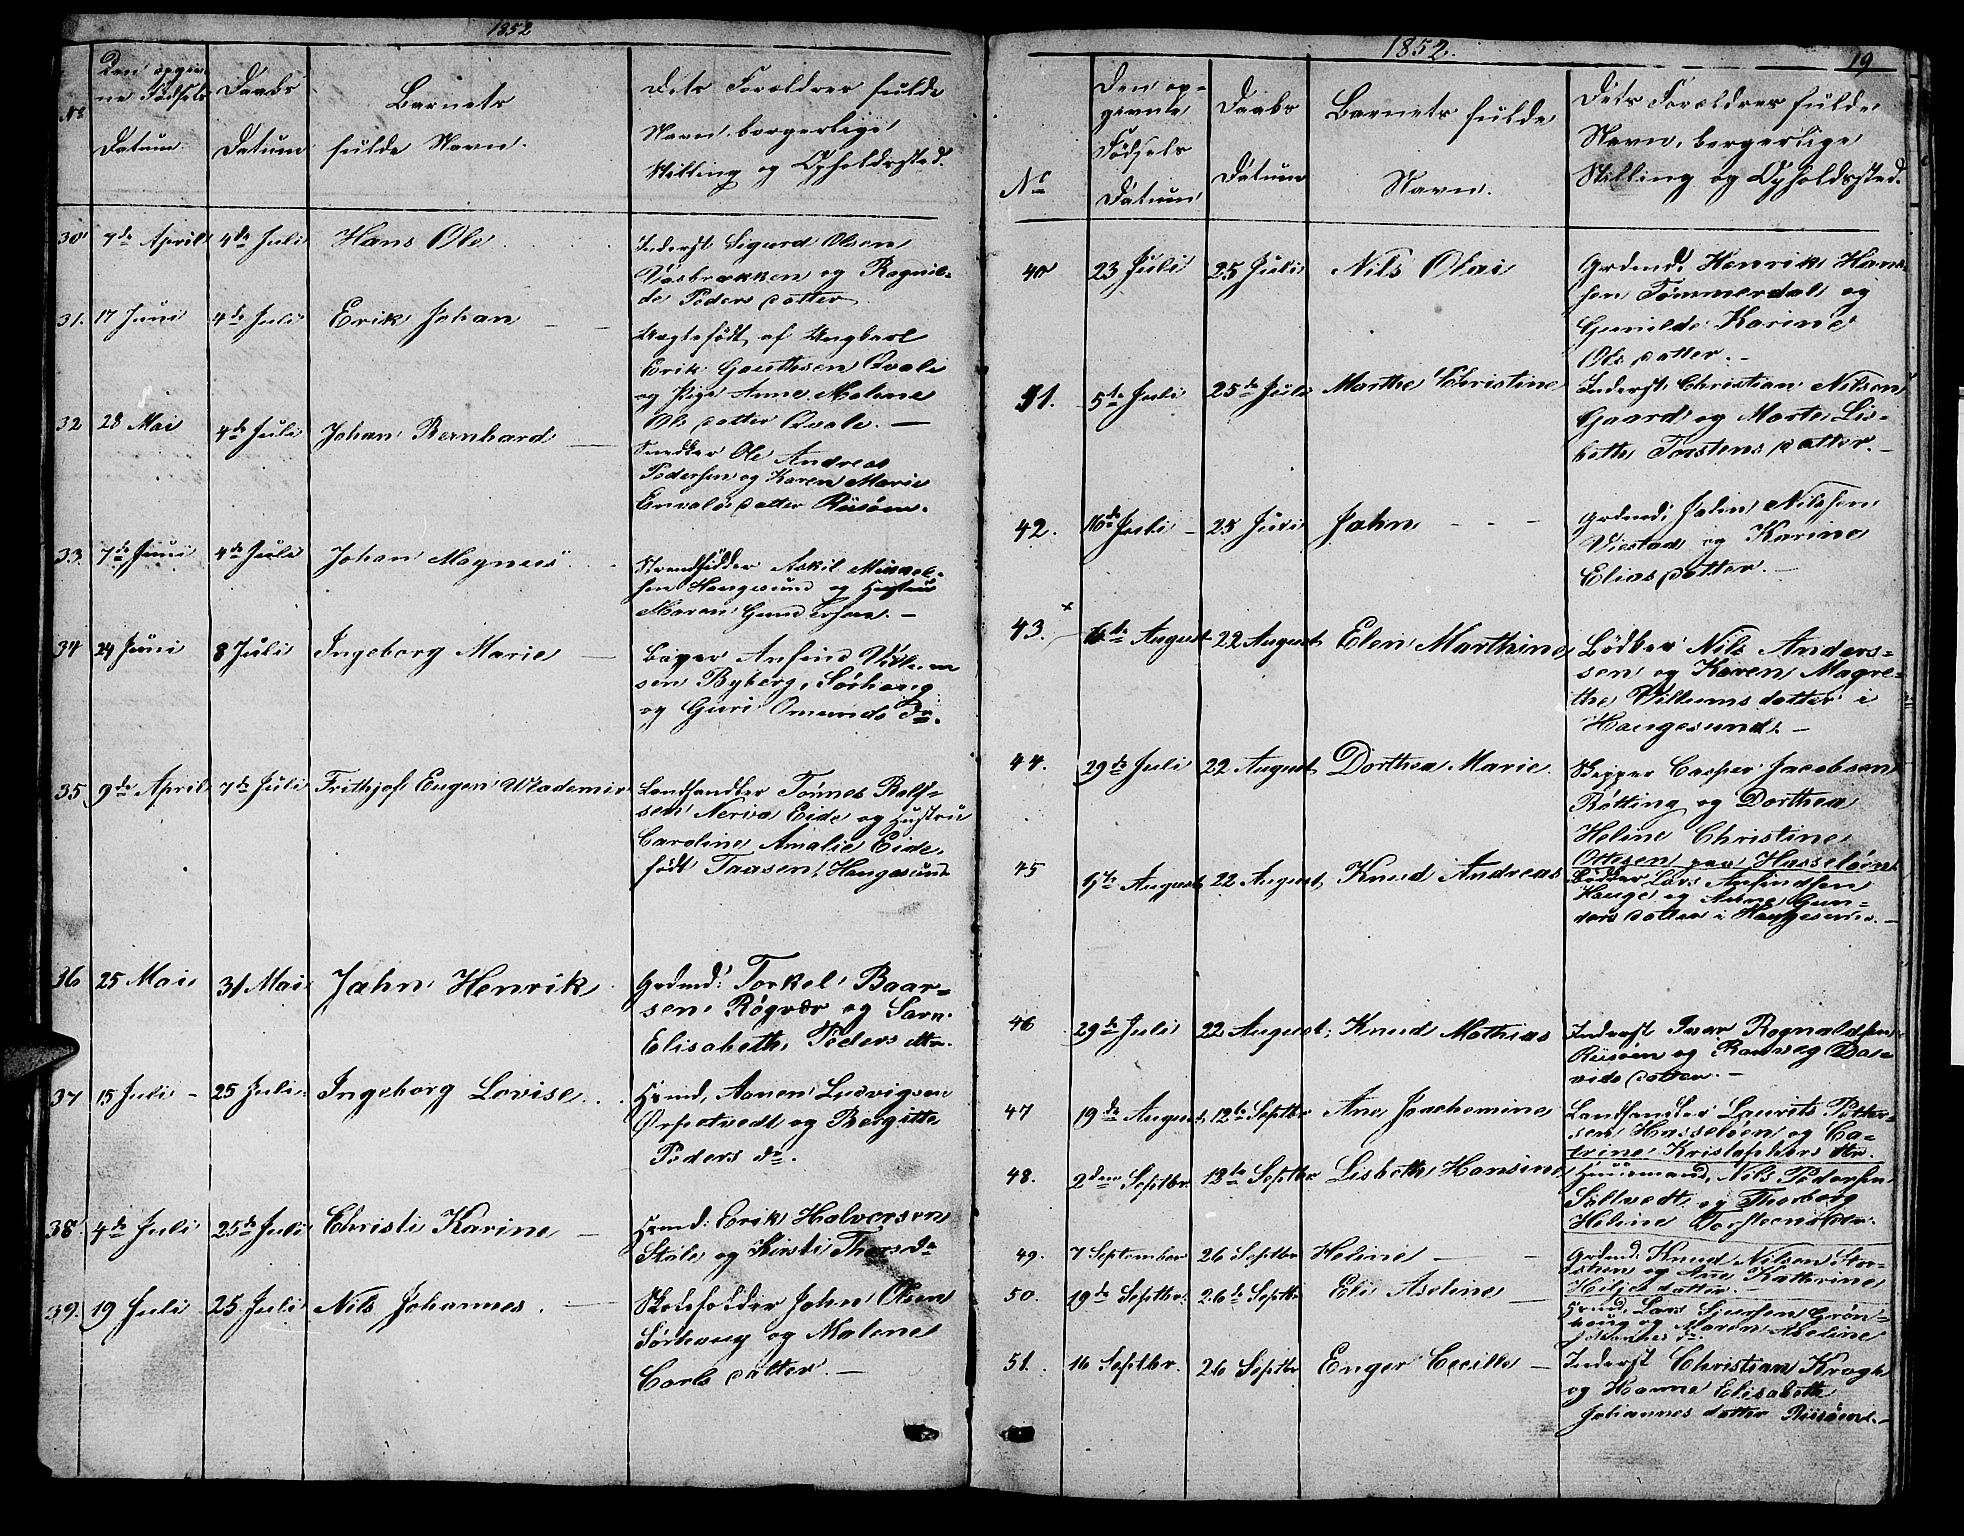 1852
Den opgiv-
ne Fødsels
Datum
Daabs
Datum
Barnets
fulde Navn.
Dets Forældres fulde
Navn, borgerlige
Stilling og Opholdssted.
30 7de April 4de Juli Hans Ole
Inderst Sigurd Olsen
og Ragnil-
de Peders datter
31. 17 Juni 4de Juli Erik Johan
Uægtefødt af Ungkarl
Erik Gauthesen Qvale
og Pige Anne Malene
Ols datter Qvale. —
32 28 Mai 4de Juli Johan Bernhard —
Snedker Ole Andreas
Pedersen og Karen Marie
datter Risøen.
33. 7de Juni 4de Juli Johan Magnus
Strandsidder Askil Mikkel-
sen Haugesund og Hustru
Maren Gundersen. —
34 24 Juni 8 Juli Ingeborg Marie —
Anfind Villum
sen Byberg, Sørhaug
og Guri Omunds Dr.
35 9de April 7de Juli Frithjof Eugen Wlademir
Landhandler Tønnes Rolf-
sen Eide og Hustru
Caroline Amalie Eide,
født Taasen, Haugesund
36 25 Mai 31 Mai John Henrik
Grdmd: Torkel Baar-
sen Røgvær og Sara
Elisabeth Peders dtr.
37 15 Juli - 25 Juli Ingeborg Lovise
Hmd, Aanen Ludvigsen
og Bergitte
Peders dr.
38. 4de Juli 25de Juli Christi Karine —
Hmd: Erik Halvorsen
Stole og Kirsti Thors dr
39. 19 Juli 25 Juli Nils Johannes. —
Skoleholder John Olsen
Sørhaug og Malene
Carls datter. —
1852. 19
No
Den op-
givne
Fødsels
Datum
Daabs
Datum
Barnets fulde
Navn.
Dets Forældres fulde
Navn, borgerlige
Stilling og Opholdssted.
40 23 Juli 25 Juli Nils Olai
Grdmd: Henrik Han-
sen Tømmerdal og
Gunilde Karine
Ols datter. —
41. 5te Juli 25de Juli Marthe Christine
Inderst Christian Nilsen
Gaard og Marte Lis-
beth Torstens datter. —
42. 16de Juli - 25 Juli John - - -
Grdmd; John Nilssen
Viestad og Karine
Elias datter. —
43. 6te August 22 August Elen Marthine
Bødker Nils Anders-
sen og Karen Magre-
the Villums datter i
Haugesund. —
44. 29de Juli 22 August Dorthea Marie.
Skipper Casper Jacobsen
Røtting og Dorthea
Heline Christine
Ottesen paa Hasseløen
45 5te August 22 August, Knud Andreas
Bødker Lars Anfindsen
Hauge og Anne Gun-
ders datter i Haugesund. —
46 29de Juli 22 August, Knud Mathias
Inderst Ivar Rognaldsen
Risøen og Ranveg Da-
vids datter. —
47 19de August 12te Septbr Ane Joachemine
Landhandler Laurits Petter-
sen Hasseløen og Ca-
trine Kristophers dtr.
48. 2den Septbr. 13te Septbr Lisbeth Hansine
Huusmand, Nils Pedersen
og Thorborg
Heline Torsteens dtr.
49. 7 September 26 Septbr Heline — -
Grdmd: Knud Nilsen Stor-
og Ane Kathrine
datter. —
50. 19de Septbr. 26de Septbr Eli Aseline —
Hmd, Lars Siursen Grøn-
houg og Maren Aseline
Johannes dr.
51. 16 Septbr. 26 Septbr Enger Cecille —
Inderst Christian Krogh
og Hanne Elisabeth
Johannes datter Risøen. —